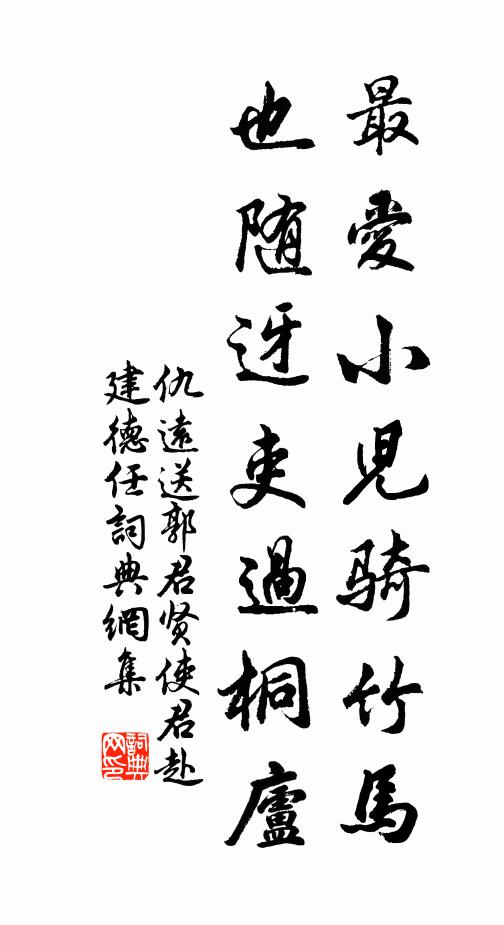 最愛小児騎竹馬
也随迓吏過桐廬
仇遠送郭君贤使君赴
建德任詞典網集
詞典
网印